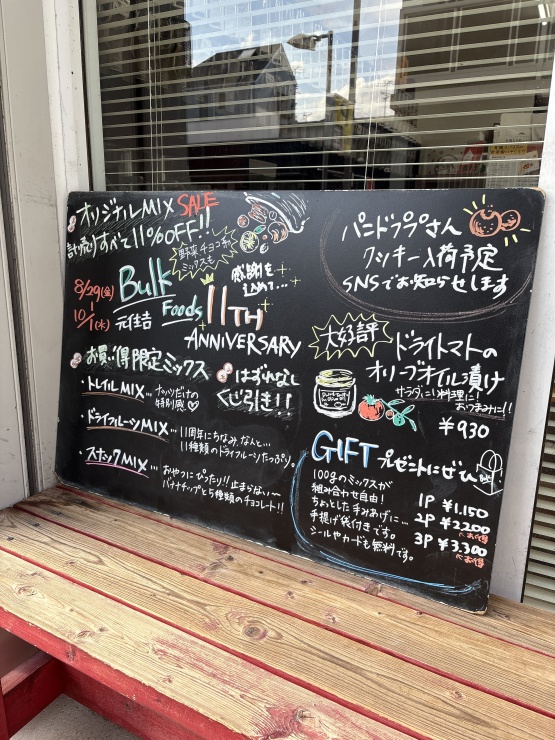 オリジナルMIX SALE
計り売りすべて11%OFF!!
野菜チョコ系
ミックスも
8/29(金)
10/1(水)
Bulk
Foods
元住吉
11TH
ANNIVERSARY
感謝を
込めて…
お買い得限定ミックス
・トレイルMIX… ナッツだけの
特別感♡
・ドライフルーツMIX… 11周年にちなみ、なんと…
11種類のドライフルーツたっぷり。
・スナックMIX… おやつにぴったり!!止まらない〜
バナナチップと5種類のチョコレート!!
はずれなし
くじ引き!!
パンドププさん
クッキー入荷予定
SNSでお知らせします
大好評
ドライトマトの
オリーブオイル漬け
サラダに!料理に!
おつまみに!!
¥930
GIFT プレゼントにぜひ
100gのミックスが
組み合わせ自由!
ちょっとした手みあげに…
手提げ袋付きです。
シールやカードも無料です。
1P ¥1.150
2P ¥2.200
3P ¥3.300